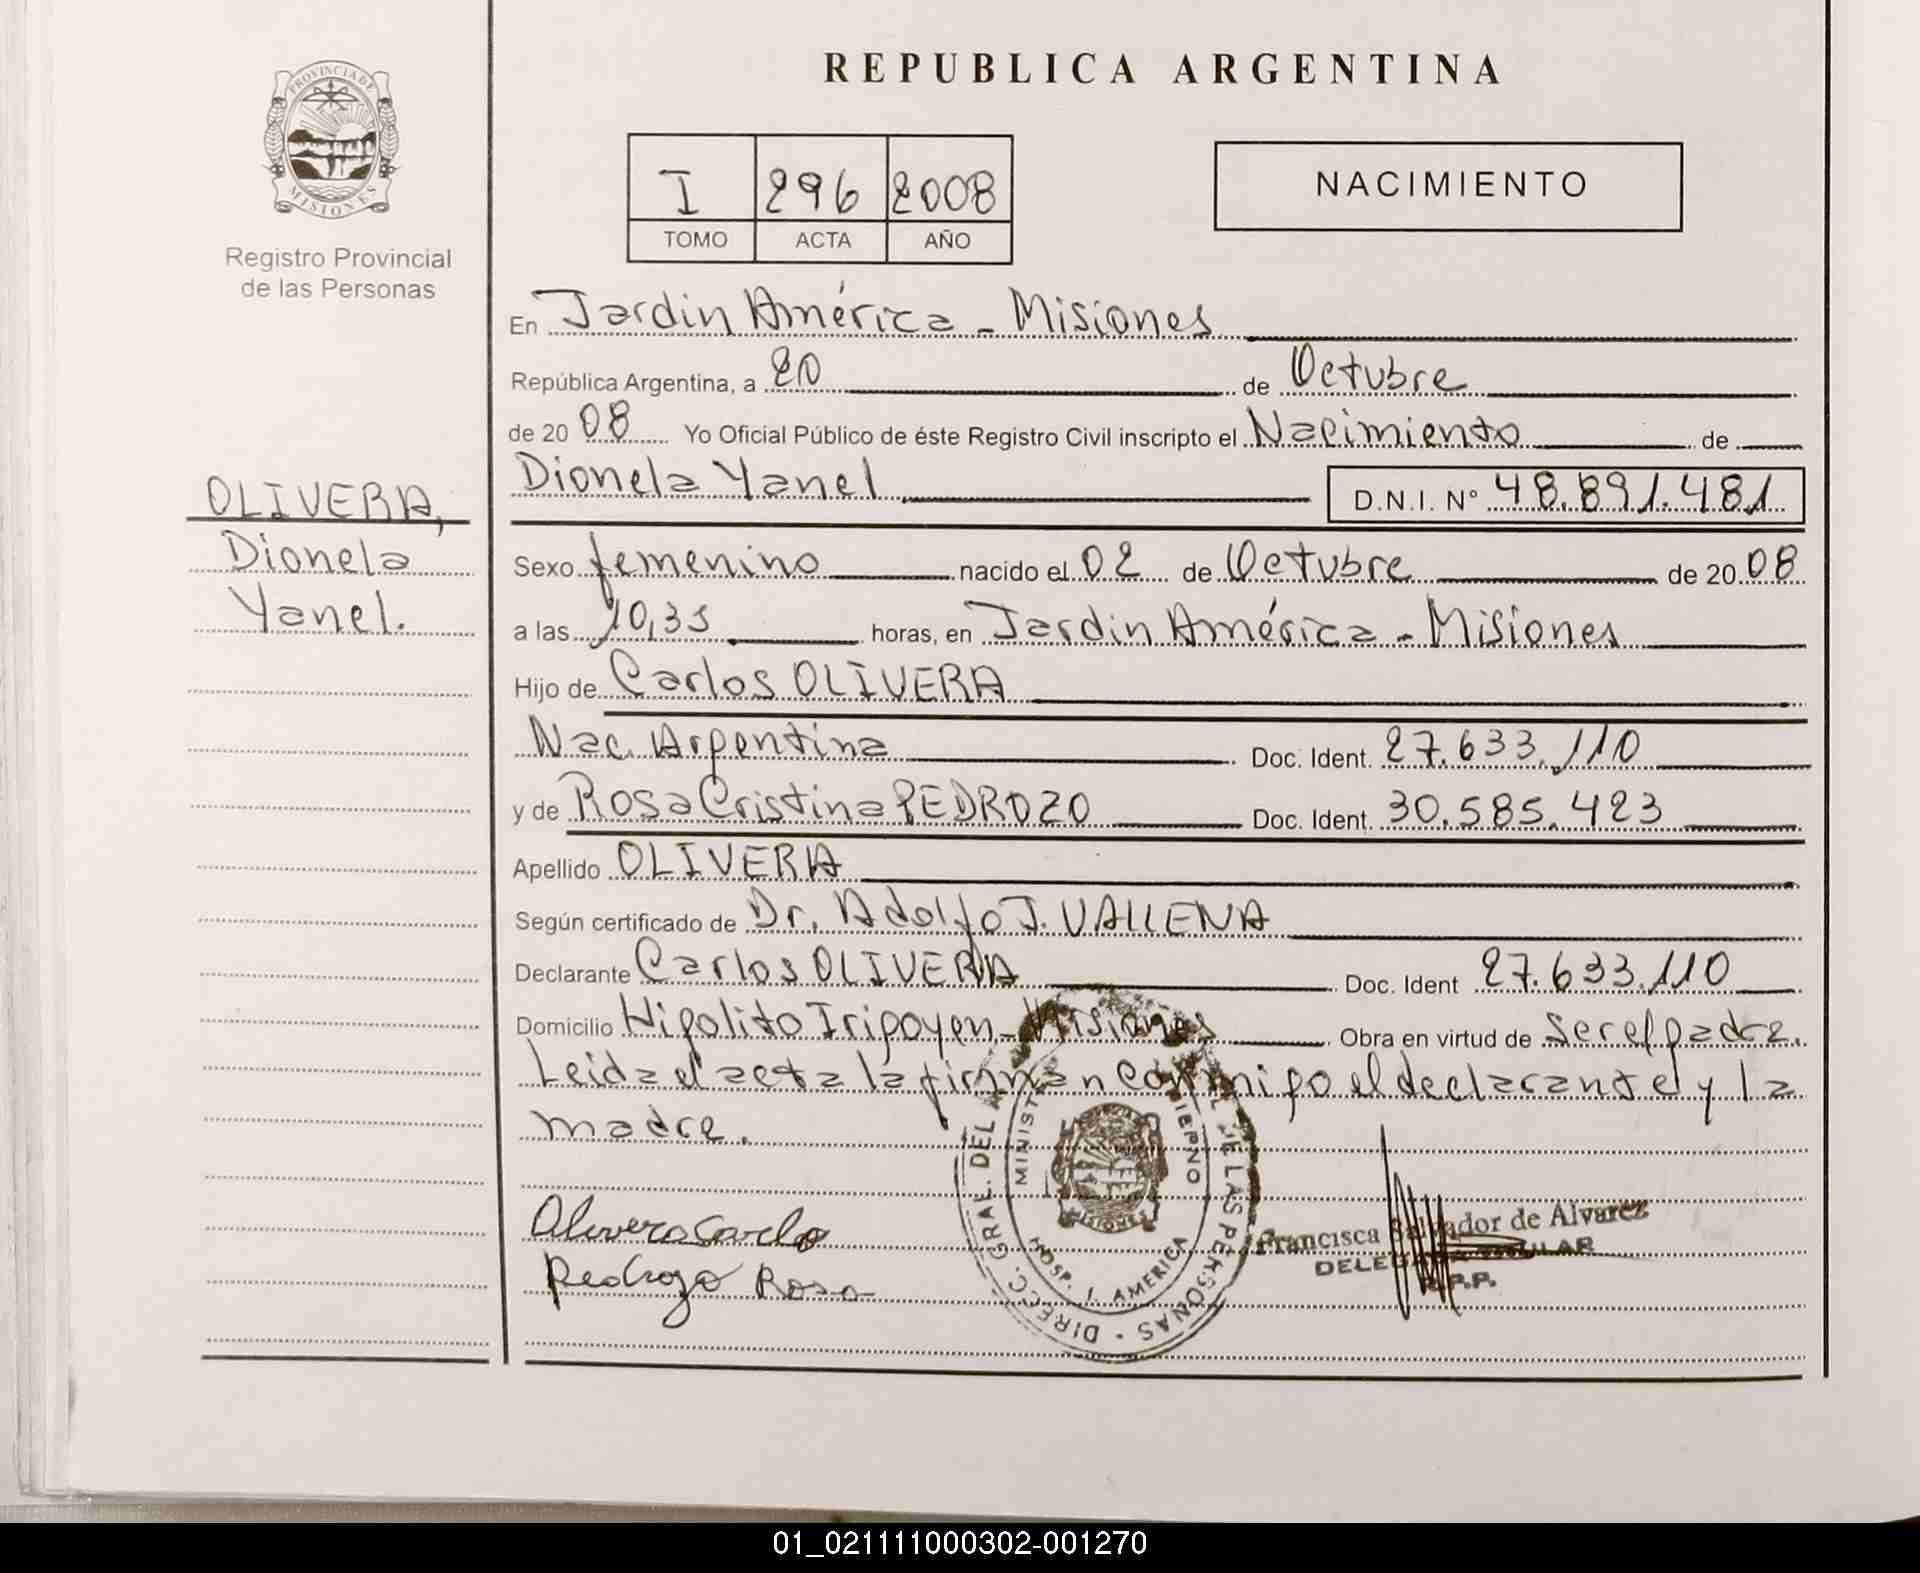 PROVINCIA DE
MISIONES
Registro Provincial
de las Personas
OLIVERA,
Dionela
Yanel.
REPUBLICA ARGENTINA
I 296 2008
TOMO ACTA AÑO
NACIMIENTO
En Jardin América - Misiones
República Argentina, a 20 de Octubre
de 2008 Yo Oficial Público de éste Registro Civil inscripto el Nacimiento de
Dionela Yanel D.N.I. Nº 48.891.481
Sexo femenino nacido el 02 de Octubre de 2008
a las 10,35 horas, en Jardin América - Misiones
Hijo de Carlos OLIVERA
Nac. Argentina Doc. Ident. 27.633.110
y de Rosa Cristina PEDROZO Doc. Ident. 30.585.423
Apellido OLIVERA
Según certificado de Dr. Adolfo J. VALLENA
Declarante Carlos OLIVERA Doc. Ident 27.633.110
Domicilio Hipolito Irigoyen - Misiones Obra en virtud de ser el padre.
Leida el acta la firman conmigo el declarante y la
madre.
Olivera Carlo
Pedrozo Rosa
DIRECC. GRAL. DEL DE LAS PERSONAS
HOSP. J. AMERICA
MISIONES
Francisca Salvador de Alvarez
R.P.P.
01_021111000302-001270